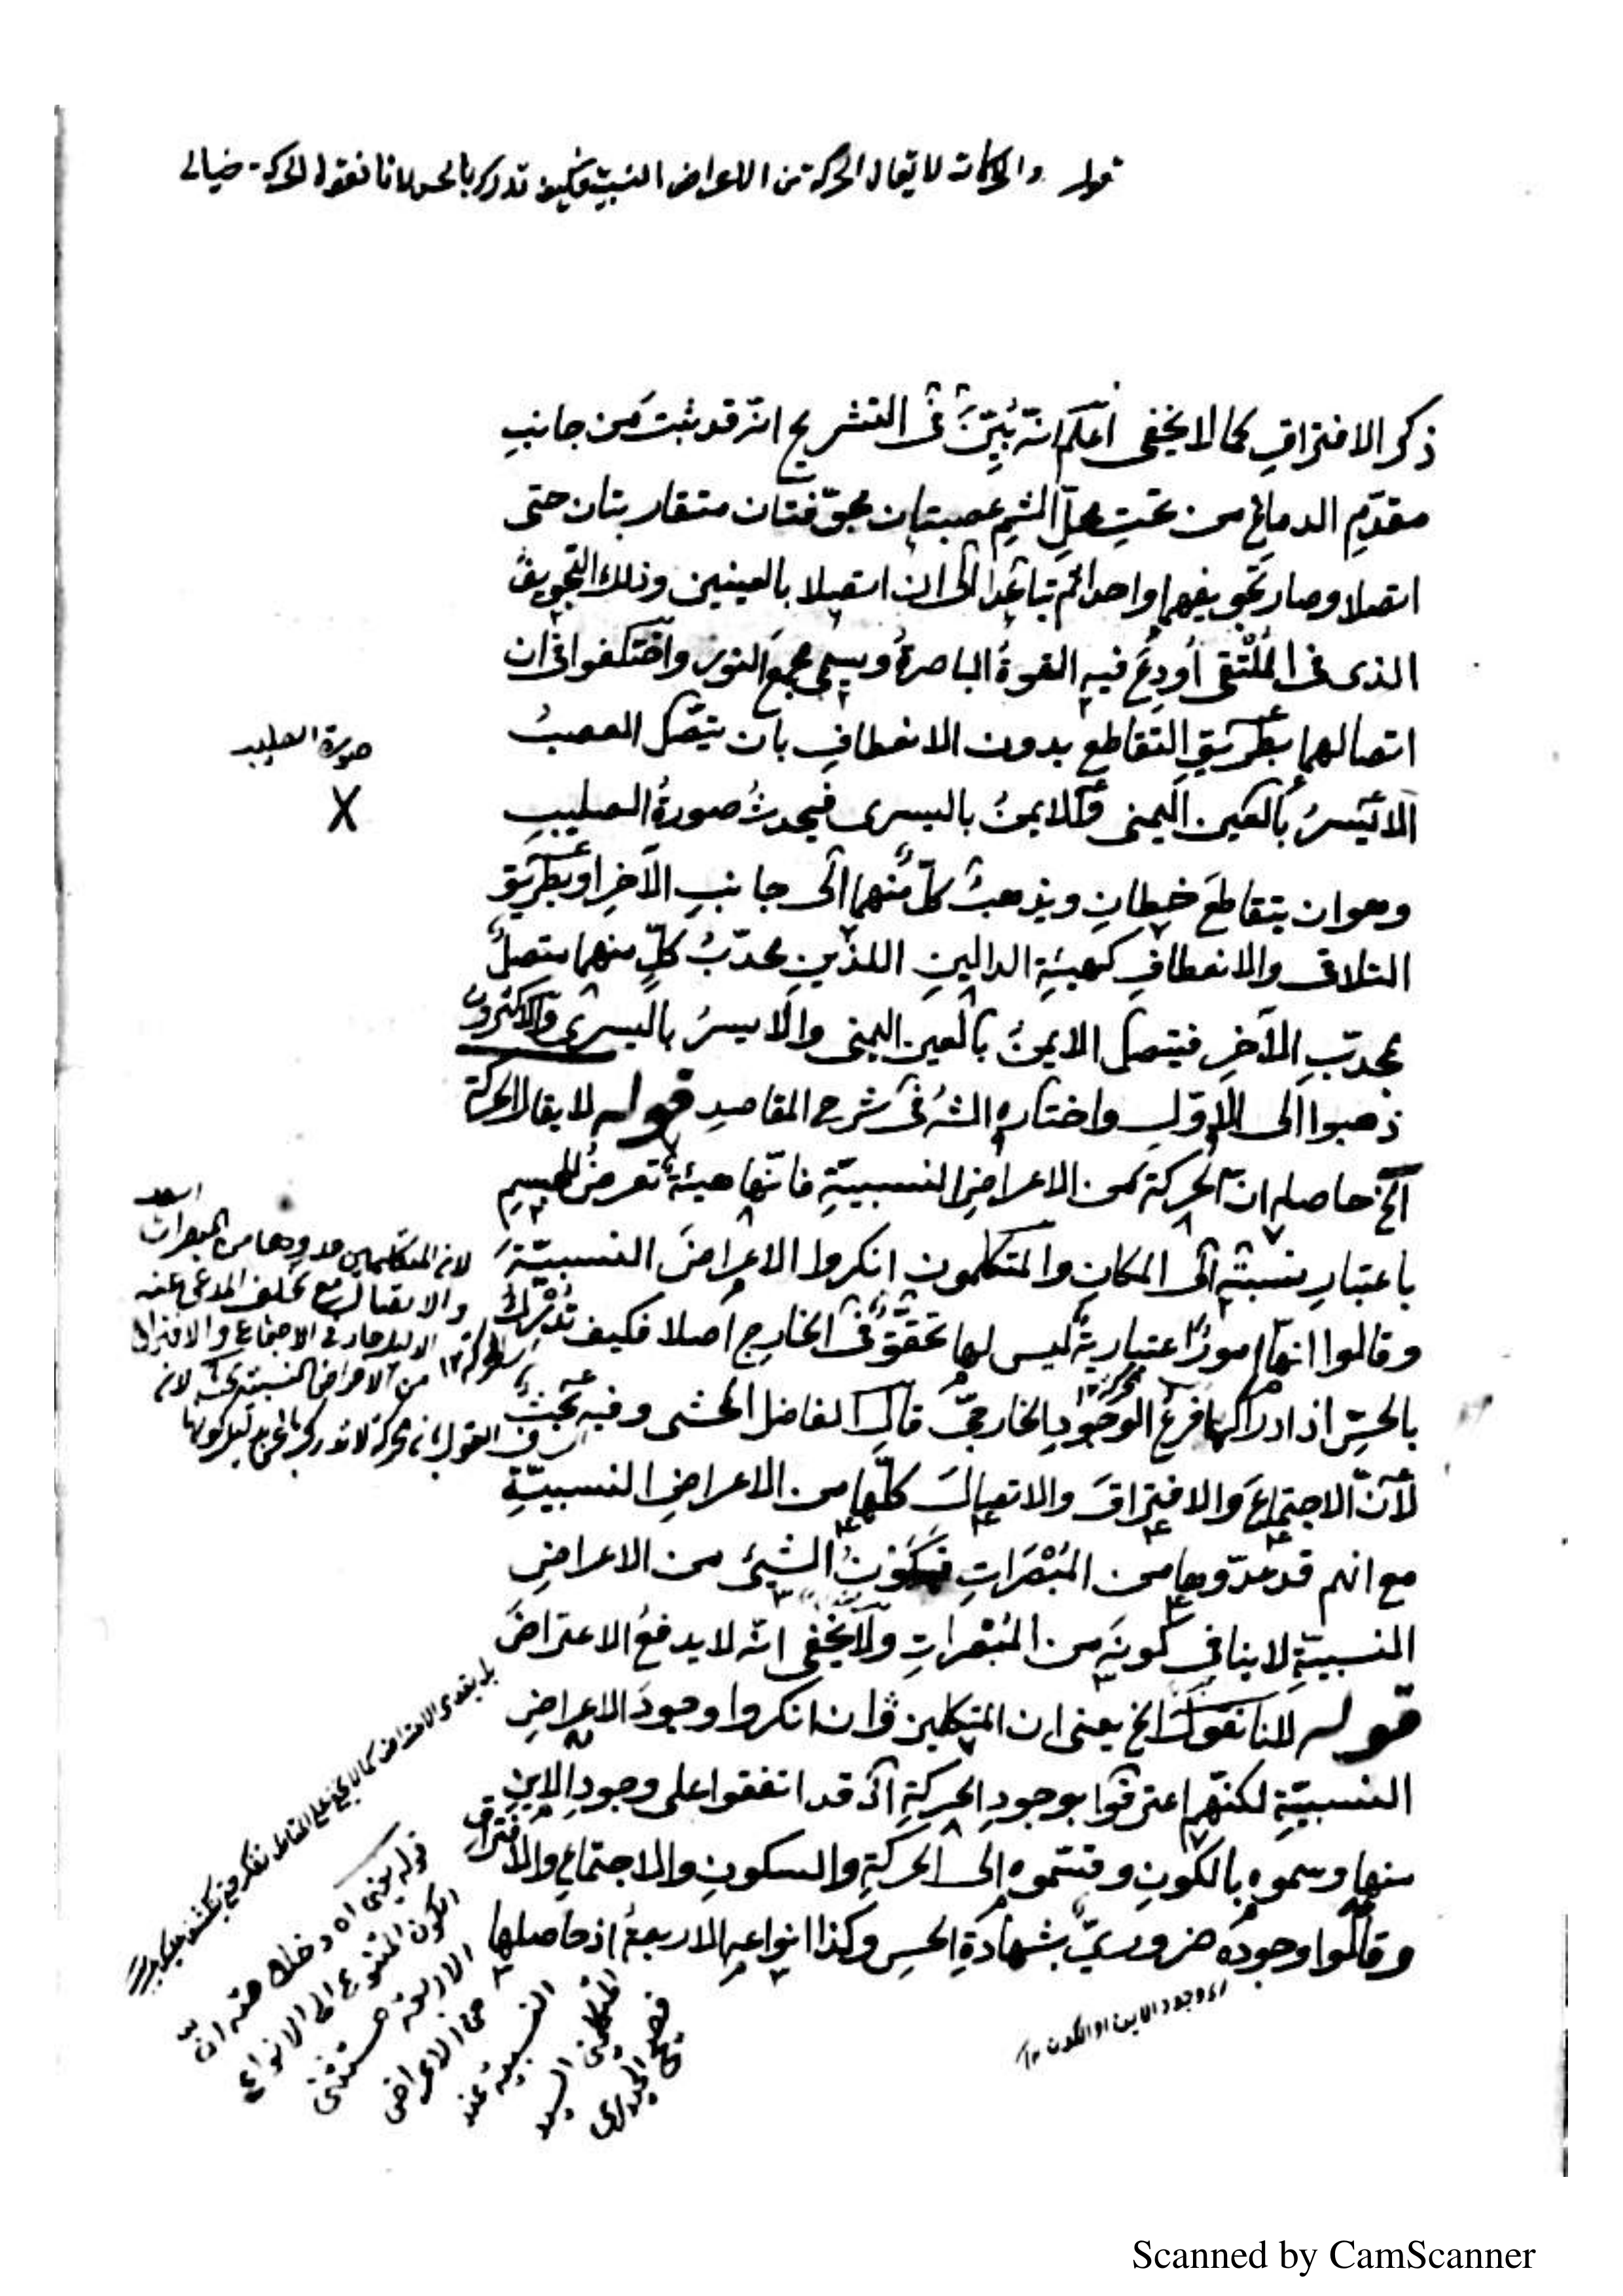 قوله والحركات لا يقال الحركة من الاعراض النسبية فكيف تدرك بالحس لانا نقول الحركة خيالى
ذكر الافتراقِ كما لا يخفى اعلم انه بُيِّنَ فى التشريح انه قد ثبت من جانبِ
مقدّمِ الدماغِ من تحتِ محلِّ الشمِ عصبتان مجوّفتان متقاربتان حتى
اتصلا وصار تجويفهما واحدا ثم تباعدا الى ان اتصلا بالعينين وذلك التجويفُ
الذى فى المُلْتقى اُودِعَ فيه القوةُ الباصرةُ ويسمى مجمعَ النور واختلفوا فى ان
اتصالهما بطريقِ التقاطع بدون الانعطافِ بان يتصل العصبُ
صورة الصليب
الايسرُ بالعين اليمنى والايمنُ باليسرى فيحدثُ صورةُ الصليبِ
X
وهو ان يتقاطعَ خطانِ ويذهبُ كلٌّ منهما الى جانبِ الآخرِ او بطريق
التلاقى والانعطافِ كهيئةِ الدالينِ اللذينِ محدّبُ كلٍّ منهما متصلٌ
بمحدّبِ الآخرِ فيتصل الايمنُ بالعين اليمنى والايسرُ باليسرى والاكثرون
ذهبوا الى الاوّلِ واختاره الشهُ فى شرح المقاصدِ قوله لا يقال الحركة
الخ حاصله انّ الحركة من الاعراضِ النسبيّةِ فانّها هيئةٌ تعرضُ للجسمِ
باعتبارِ نسبتِه الى المكانِ والمتكلمون انكروا الاعراضَ النسبيّةَ
وقالوا انّها امورٌ اعتباريةٌ ليس لها تحققٌ فى الخارجِ اصلا فكيف تُدْرَكُ
بالحسِّ اذ ادراكها فرعُ الوجودِ الخارجىِّ قال الفاضل المحشى وفيه بحثٌ
لانّ الاجتماعَ والافتراقَ والاتصالَ كلّها من الاعراضِ النسبيّةِ
مع انهم قد عدّوها من المُبْصَراتِ فكونُ الشيئ من الاعراضِ
النسبيّةِ لا ينافى كونَه من المُبْصَراتِ ولا يخفى انّه لا يدفعُ الاعتراضَ
قوله لانا نقول الخ يعنى ان المتكلمين وان انكروا وجودَ الاعراضِ
النسبيّةِ لكنّهم اعترفوا بوجودِ الحركةِ اذ قد اتفقوا على وجودِ الاينِ
منها وسموه بالكونِ وقسّموه الى الحركةِ والسكونِ والاجتماعِ والافتراقِ
وقالوا وجودُه ضروريٌّ بشهادةِ الحسِ وكذا انواعِه الاربعةُ اذ حاصلها
اى وجود الاين او الكون ١٢
لان المتكلمين عدوها من المبصرات
من الاعراض النسبية
قوله يعنى اه دخلك منه ان
الكون المتنوع الى الانواع
الاربعة مستثنى
من الاعراض
النسبية عند
المتكلمين السيد
فصيح الحيدرى
Scanned by CamScanner